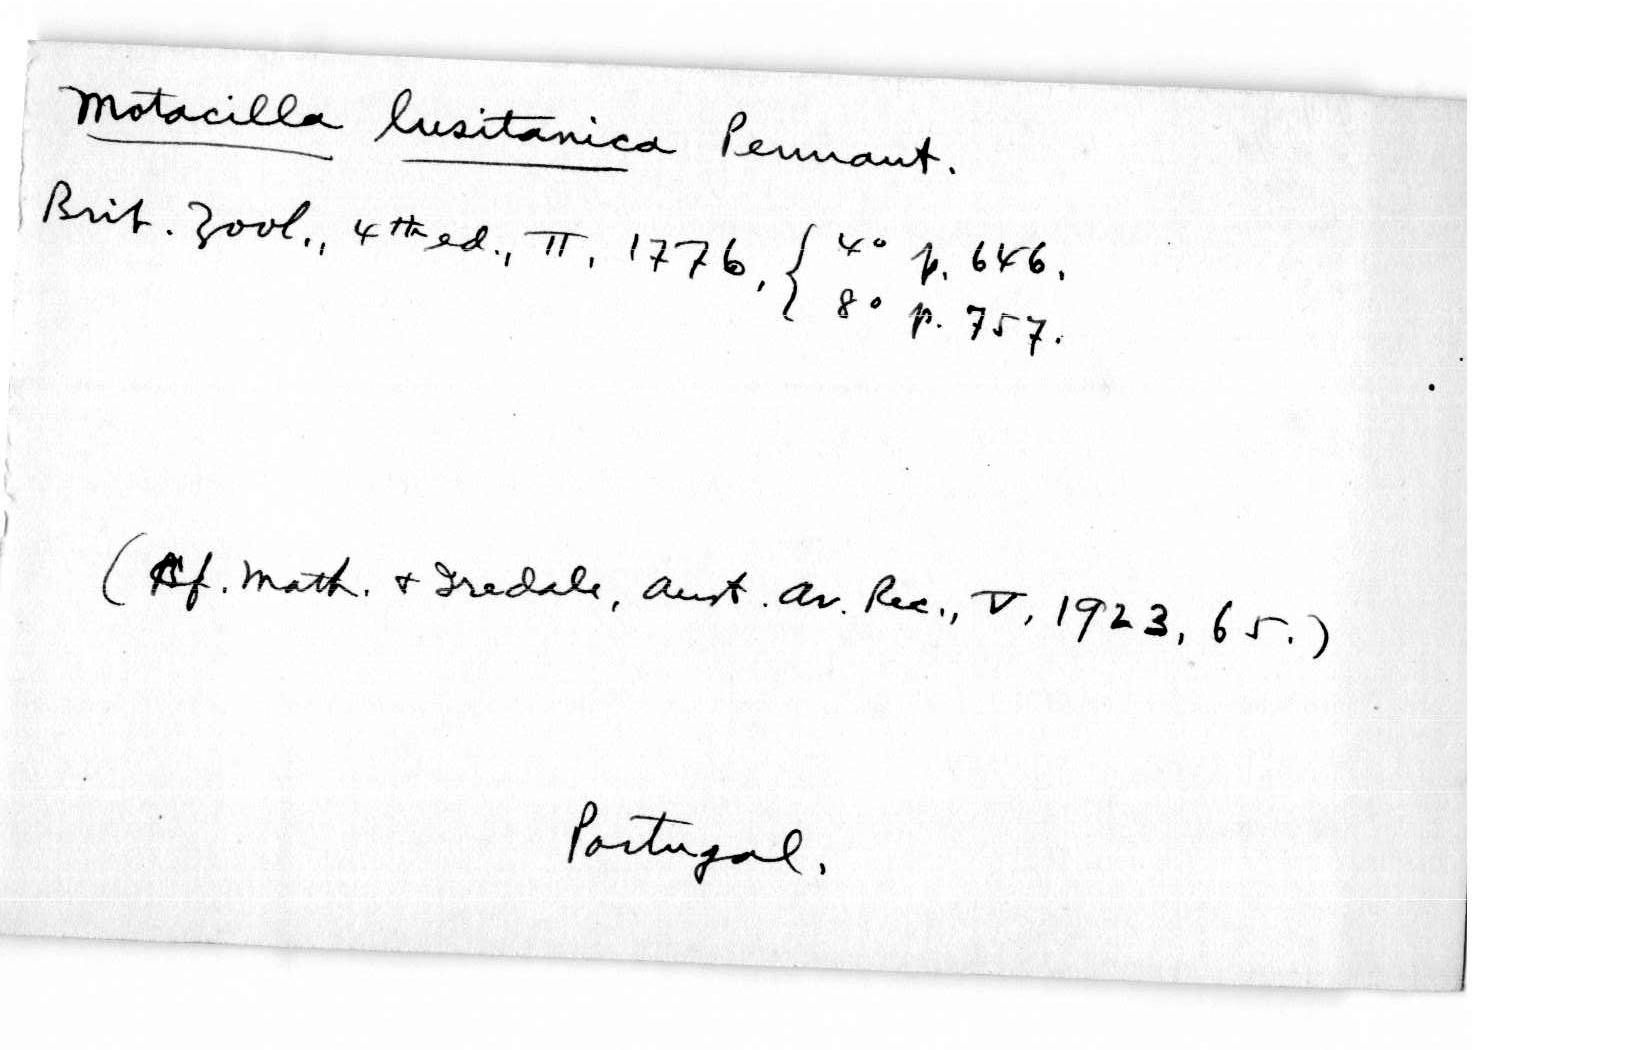 Motacilla lusitanica Pennant.
Brit. Zool., 4th ed., II, 1776, { 4° p. 646.
8° p. 757.
(Cf. Math. & Iredale, Aust. Av. Rec., V, 1923, 65.)
Portugal.